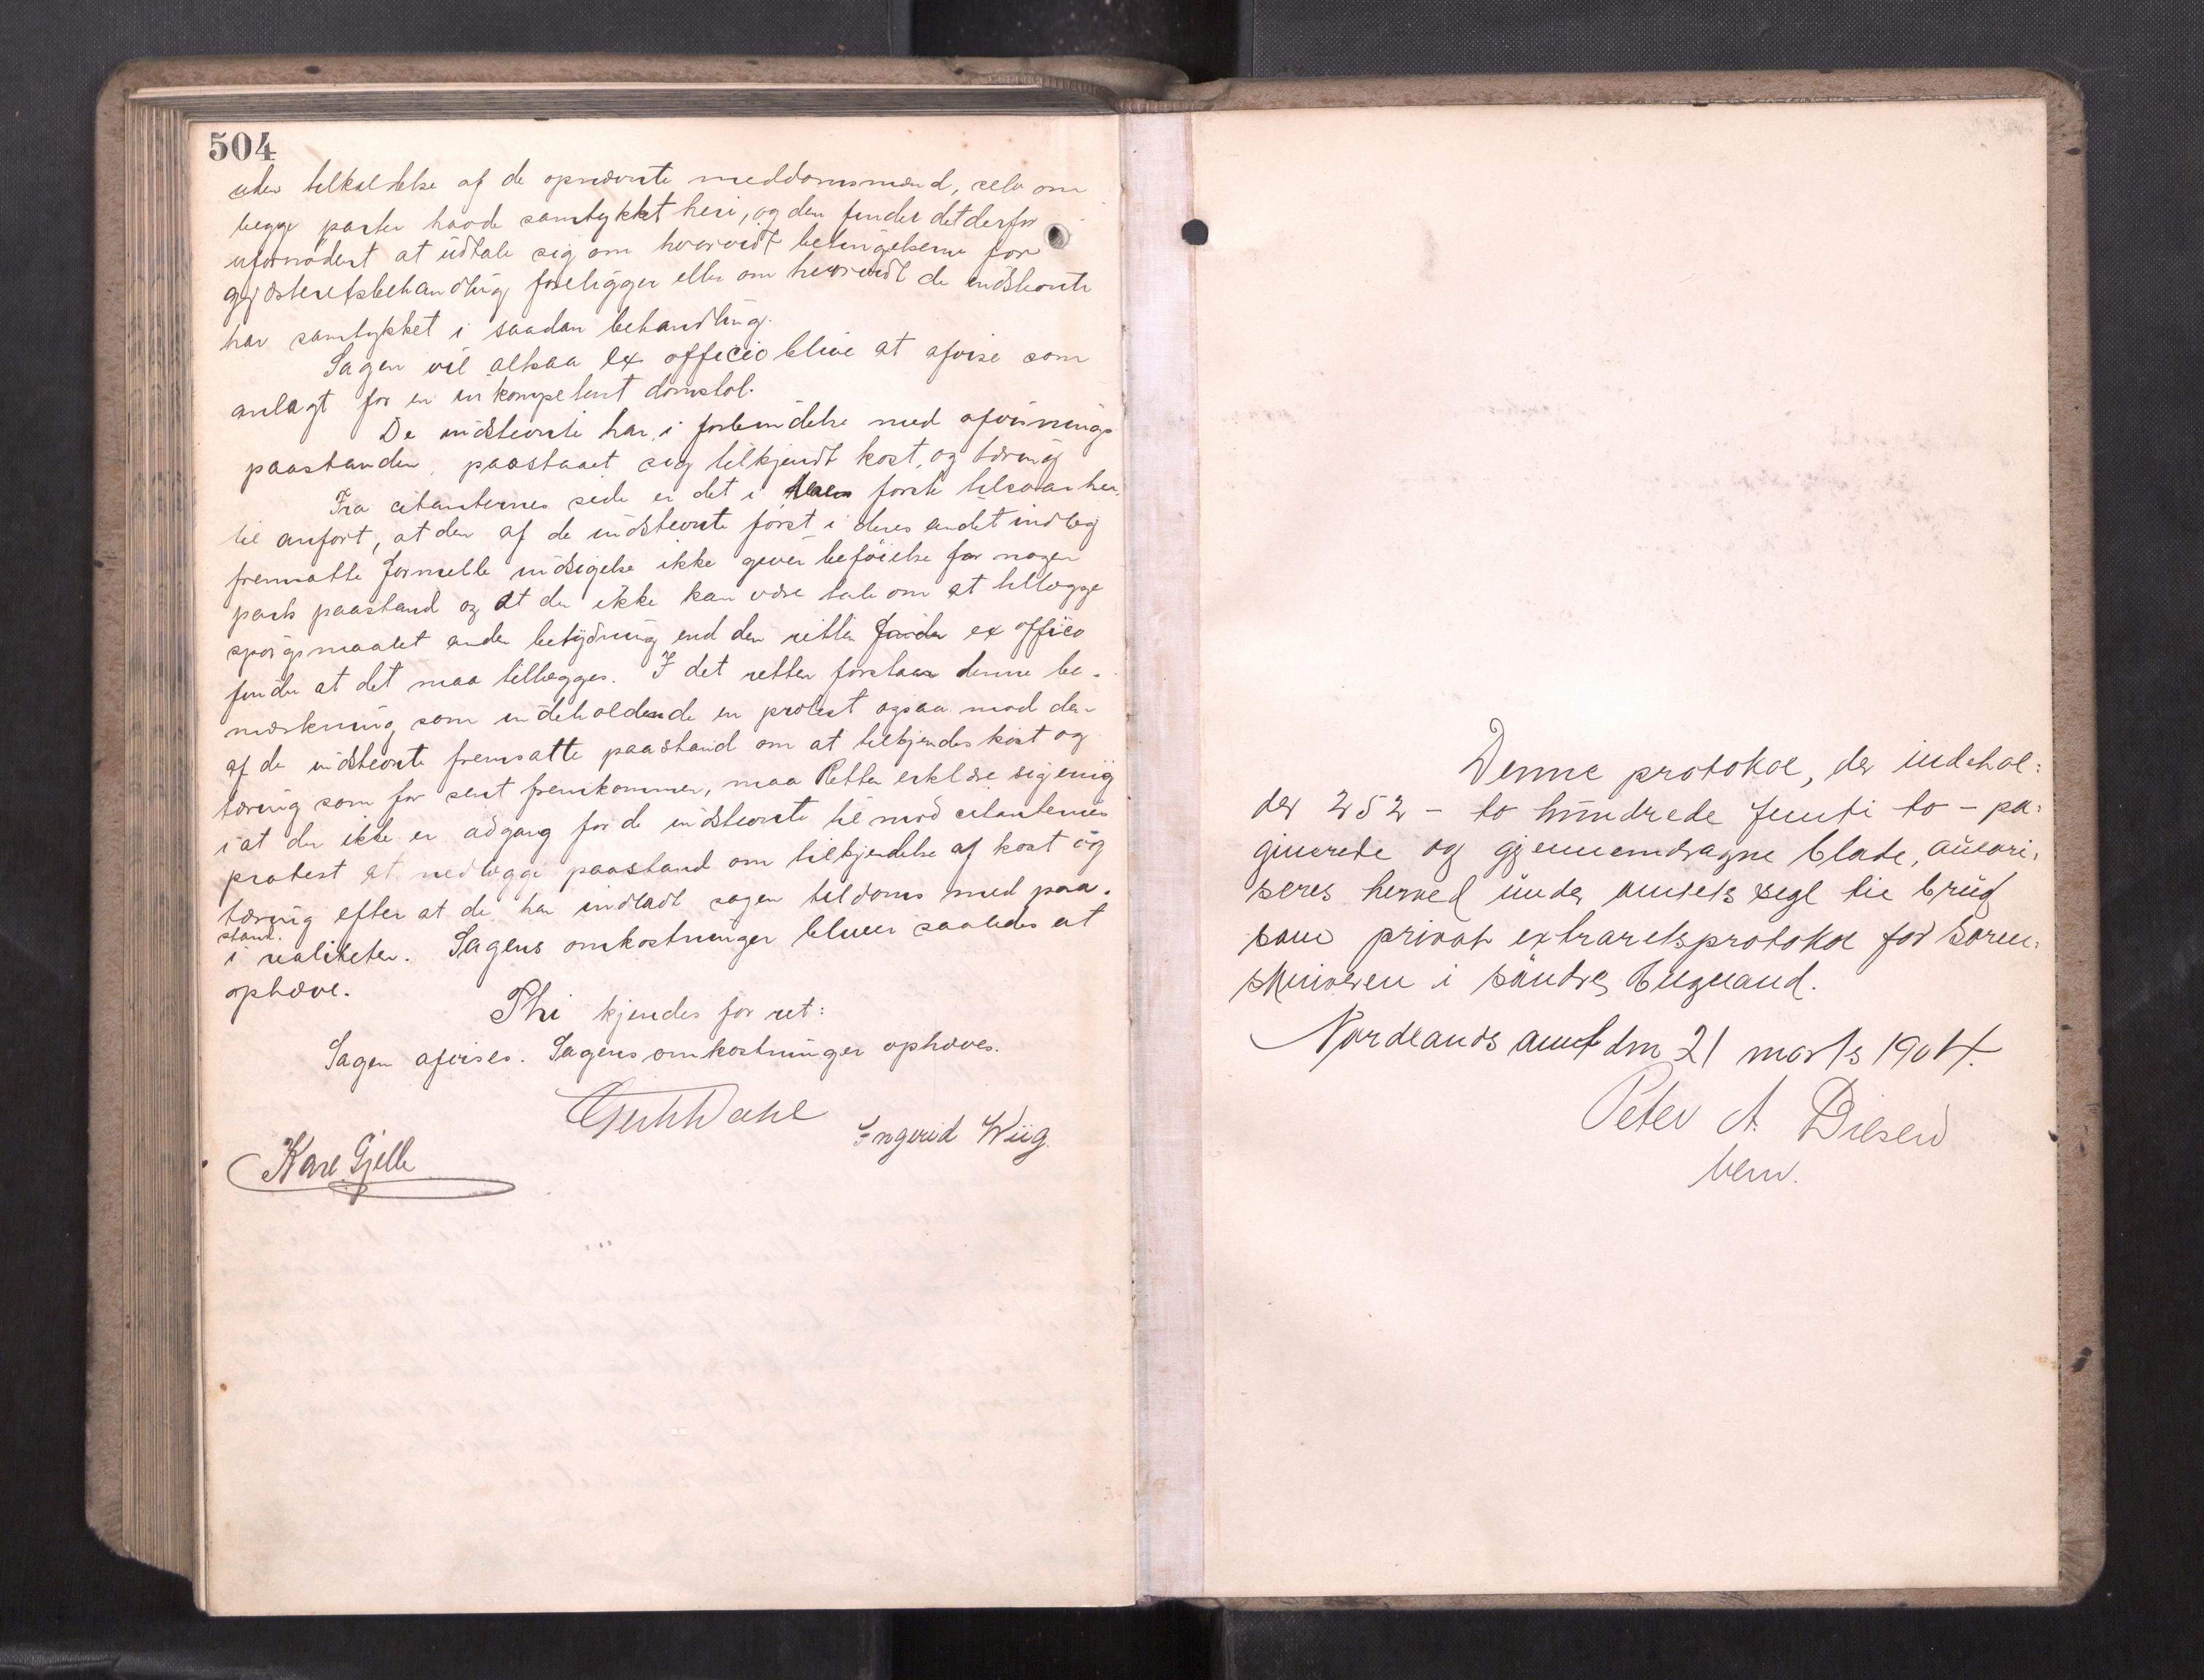 504
uden tilkaldelse af de opnævnte meddomsmænd, selv om
begge parter havde samtykket heri, og den finder det derfor
ufornødent at udtale sig om hvorvidt betingelserne for
gjæsteretsbehandling foreligger eller om hvorvidt de indstevnte
har samtykket i saadan behandling.
Sagen vil altsaa ex officio blive at afvise som
anlagt for en inkompetent domstol.
De indstevnte har i forbindelse med afvisnings
paastanden paastaaet sig tilkjendt kost og tæring
Fra citanternes side er det i første tilsvar her
til anført, at den af de indstevnte først i deres andet indlæg
fremsatte formelle indsigelse ikke giver beføielse for nogen
parts paastand og at der ikke kan være tale om at tillægge
spørgsmaalet anden betydning end den retten ex officio
finder at det maa tillægges. I det retten forstaar denne be-
mærkning som indeholdende en protest ogsaa mod den
af de indstevnte fremsatte paastand om at tilkjendes kost og
tæring som for sent fremkommen, maa Retten erklære sig enig
i at der ikke er adgang for de indstevnte til mod citanternes
protest at nedlægge paastand om tilkjendelse af kost og
tæring efter at de har indladt sagen til doms med paa-
stand
i realiteten. Sagens omkostninger bliver saaledes at
ophæve.
Thi kjendes for ret:
Sagen afvises. Sagens omkostninger ophæves.
Ingerid Wiig.
Karl Gjelle
Denne protokol, der indehol:
der 252 - to hundrede femti to - pa:
ginerede og gjennemdragne blade, autori:
seres herved under amtets segl til brug
som privat extraretsprotokol for Soren:
skriveren i søndre Helgeland.
Nordlands amt den 21 marts 1904.
Peter A. Diesen
bem.